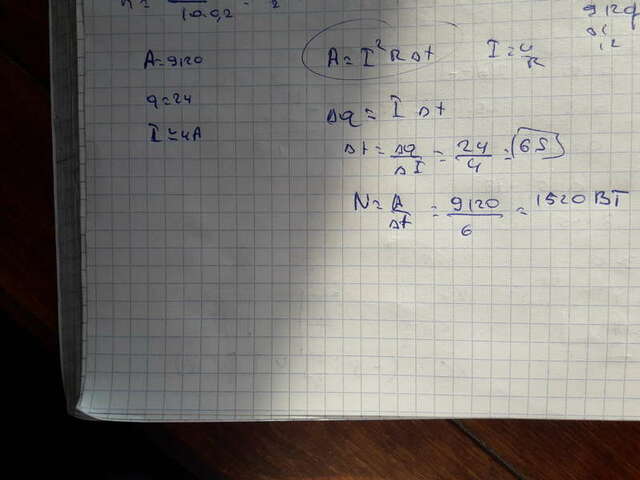 1,0 9,2 2
A=9120
q=24
I=4A
A=I²RΔt
I=U/R
Δq=IΔt
Δt=Δq/ΔI=24/4=(6s)
N=A/Δt=9120/6=1520Вт